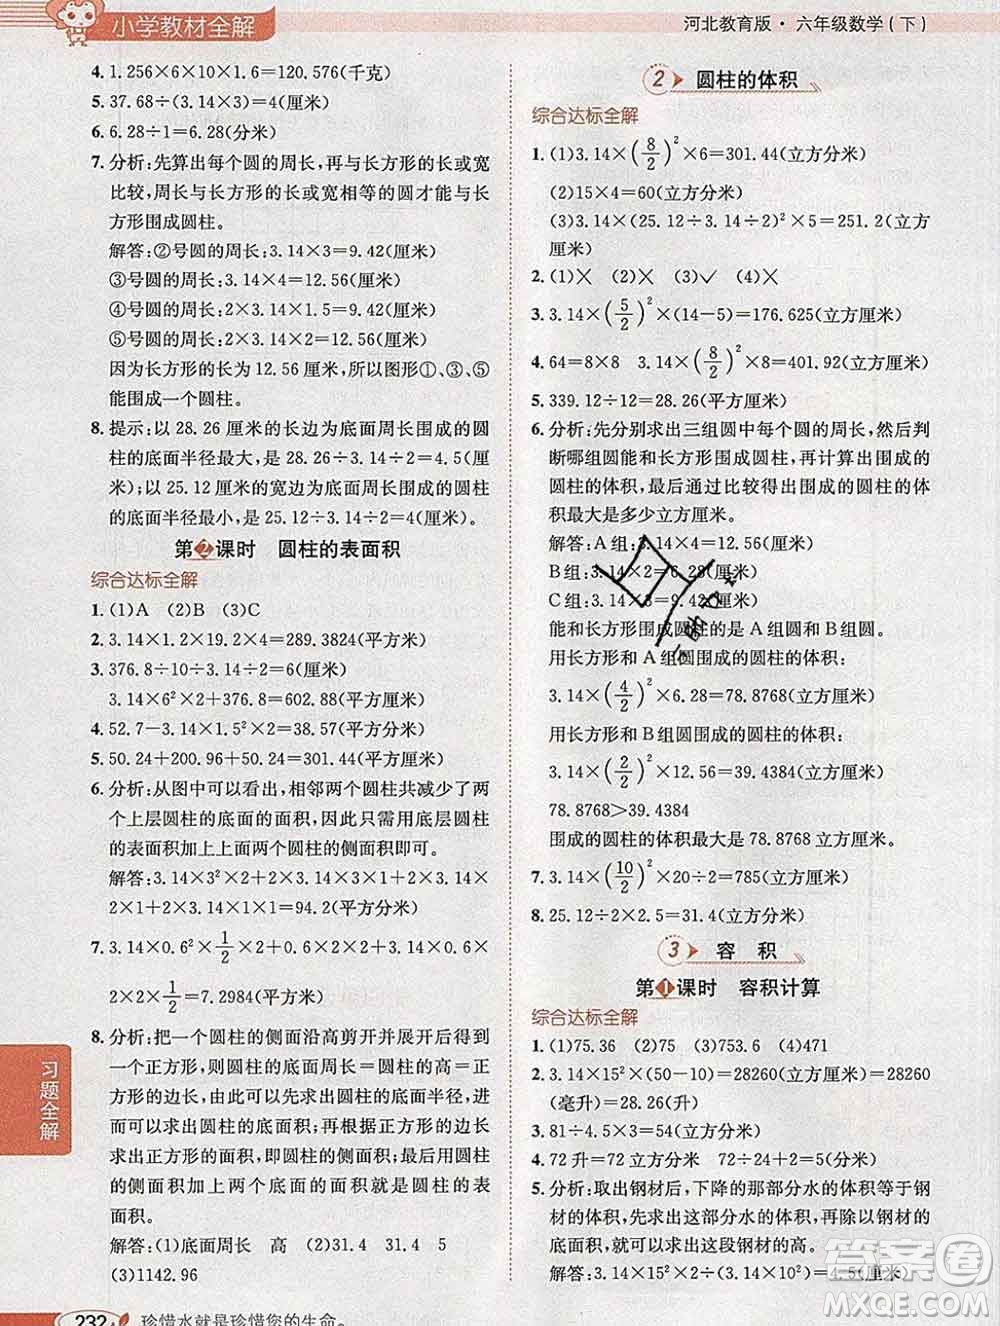 小学教材全解
河北教育版·六年级数学(下)
4. 1.256×6×10×1.6=120.576(千克)
5. 37.68÷(3.14×3)=4(厘米)
6. 6.28÷1=6.28(分米)
7. 分析:先算出每个圆的周长,再与长方形的长或宽
比较,周长与长方形的长或宽相等的圆才能与长
方形围成圆柱。
解答:②号圆的周长:3.14×3=9.42(厘米)
③号圆的周长:3.14×4=12.56(厘米)
④号圆的周长:2×3.14×1.5=9.42(厘米)
⑤号圆的周长:2×3.14×2=12.56(厘米)
因为长方形的长为12.56厘米,所以图形①、③、⑤
能围成一个圆柱。
8. 提示:以28.26厘米的长边为底面周长围成的圆
柱的底面半径最大,是28.26÷3.14÷2=4.5(厘
米);以25.12厘米的宽边为底面周长围成的圆柱
的底面半径最小,是25.12÷3.14÷2=4(厘米)。
第2课时 圆柱的表面积
综合达标全解
1. (1)A (2)B (3)C
2. 3.14×1.2×19.2×4=289.3824(平方分米)
3. 376.8÷10÷3.14÷2=6(厘米)
3.14×6²×2+376.8=602.88(平方厘米)
4. 52.7-3.14×1.5²×2=38.57(平方分米)
5. 50.24+200.96+50.24=301.44(平方厘米)
6. 分析:从图中可以看出,相邻两个圆柱共减少了两
个上层圆柱的底面的面积,因此只需用最大圆柱
的表面积加上上面两个圆柱的侧面积即可。
解答:3.14×3²×2+3.14×3×2×1+3.14×2×
2×1+3.14×1×2×1=94.2(平方分米)
7. 3.14×0.6²×1/2×2+0.6×2×2+3.14×0.6×
2×2×1/2=7.2984(平方米)
8. 分析:把一个圆柱的侧面沿高剪开并展开后得到
一个正方形,则圆柱的底面周长和圆柱的高就是
正方形的边长,由此可以求出圆柱的底面半径,进
而可以求出圆柱的底面积,再利用正方形的边长
求出正方形的面积,即圆柱的侧面积,最后用圆柱
的侧面积加上两个底面的面积就是圆柱的表
面积。
解答:(1)底面周长 高 (2)31.4 31.4 5
(3)1142.96
习题全解
232
珍惜水就是珍惜您的生命。
2 圆柱的体积
综合达标全解
1. (1)3.14×(8/2)²×6=301.44(立方分米)
(2)15×4=60(立方分米)
(3)3.14×(25.12÷3.14÷2)²×5=251.2(立方
厘米)
2. (1)✕ (2)✕ (3)✓ (4)✕
3. 3.14×(5/2)²×(14-5)=176.625(立方厘米)
4. 64=8×8 3.14×(8/2)²×8=401.92(立方厘米)
5. 339.12÷12=28.26(平方厘米)
6. 分析:先分别求出三组圆中每个圆的周长,然后判
断哪组圆能和长方形围成圆柱,再计算出围成的
圆柱的体积,最后通过比较得出围成的圆柱的体
积最大是多少立方厘米。
解答:A组:3.14×4=12.56(厘米)
B组:3.14×2=6.28(厘米)
C组:3.14×3=9.42(厘米)
能和长方形围成圆柱的是A组圆和B组圆。
用长方形和A组圆围成的圆柱的体积:
3.14×(4/2)²×6.28=78.8768(立方厘米)
用长方形和B组圆围成的圆柱的体积:
3.14×(2/2)²×12.56=39.4384(立方厘米)
78.8768>39.4384
围成的圆柱的体积最大是78.8768立方厘米。
7. 3.14×(10/2)²×20÷2=785(立方厘米)
8. 25.12÷2÷3.14=4(立方分米)
3 容 积
第1课时 容积计算
综合达标全解
1. (1)75.36 (2)75 (3)753.6 (4)471
2. 3.14×15²×(50-10)=28260(立方厘米)=28260
(毫升)=28.26(升)
3. 81÷4.5×3=54(立方分米)
4. 72升=72立方分米 72÷24=3(分米)
5. 分析:取出钢材后,下降的那部分水的体积等于钢
材的体积,先求出这部分水的体积,再除以钢材的
底面积,求出这段钢材的高。
解答:3.14×15²×2÷(3.14×10²)=4.5(厘米)
答案圈
MXQE.COM